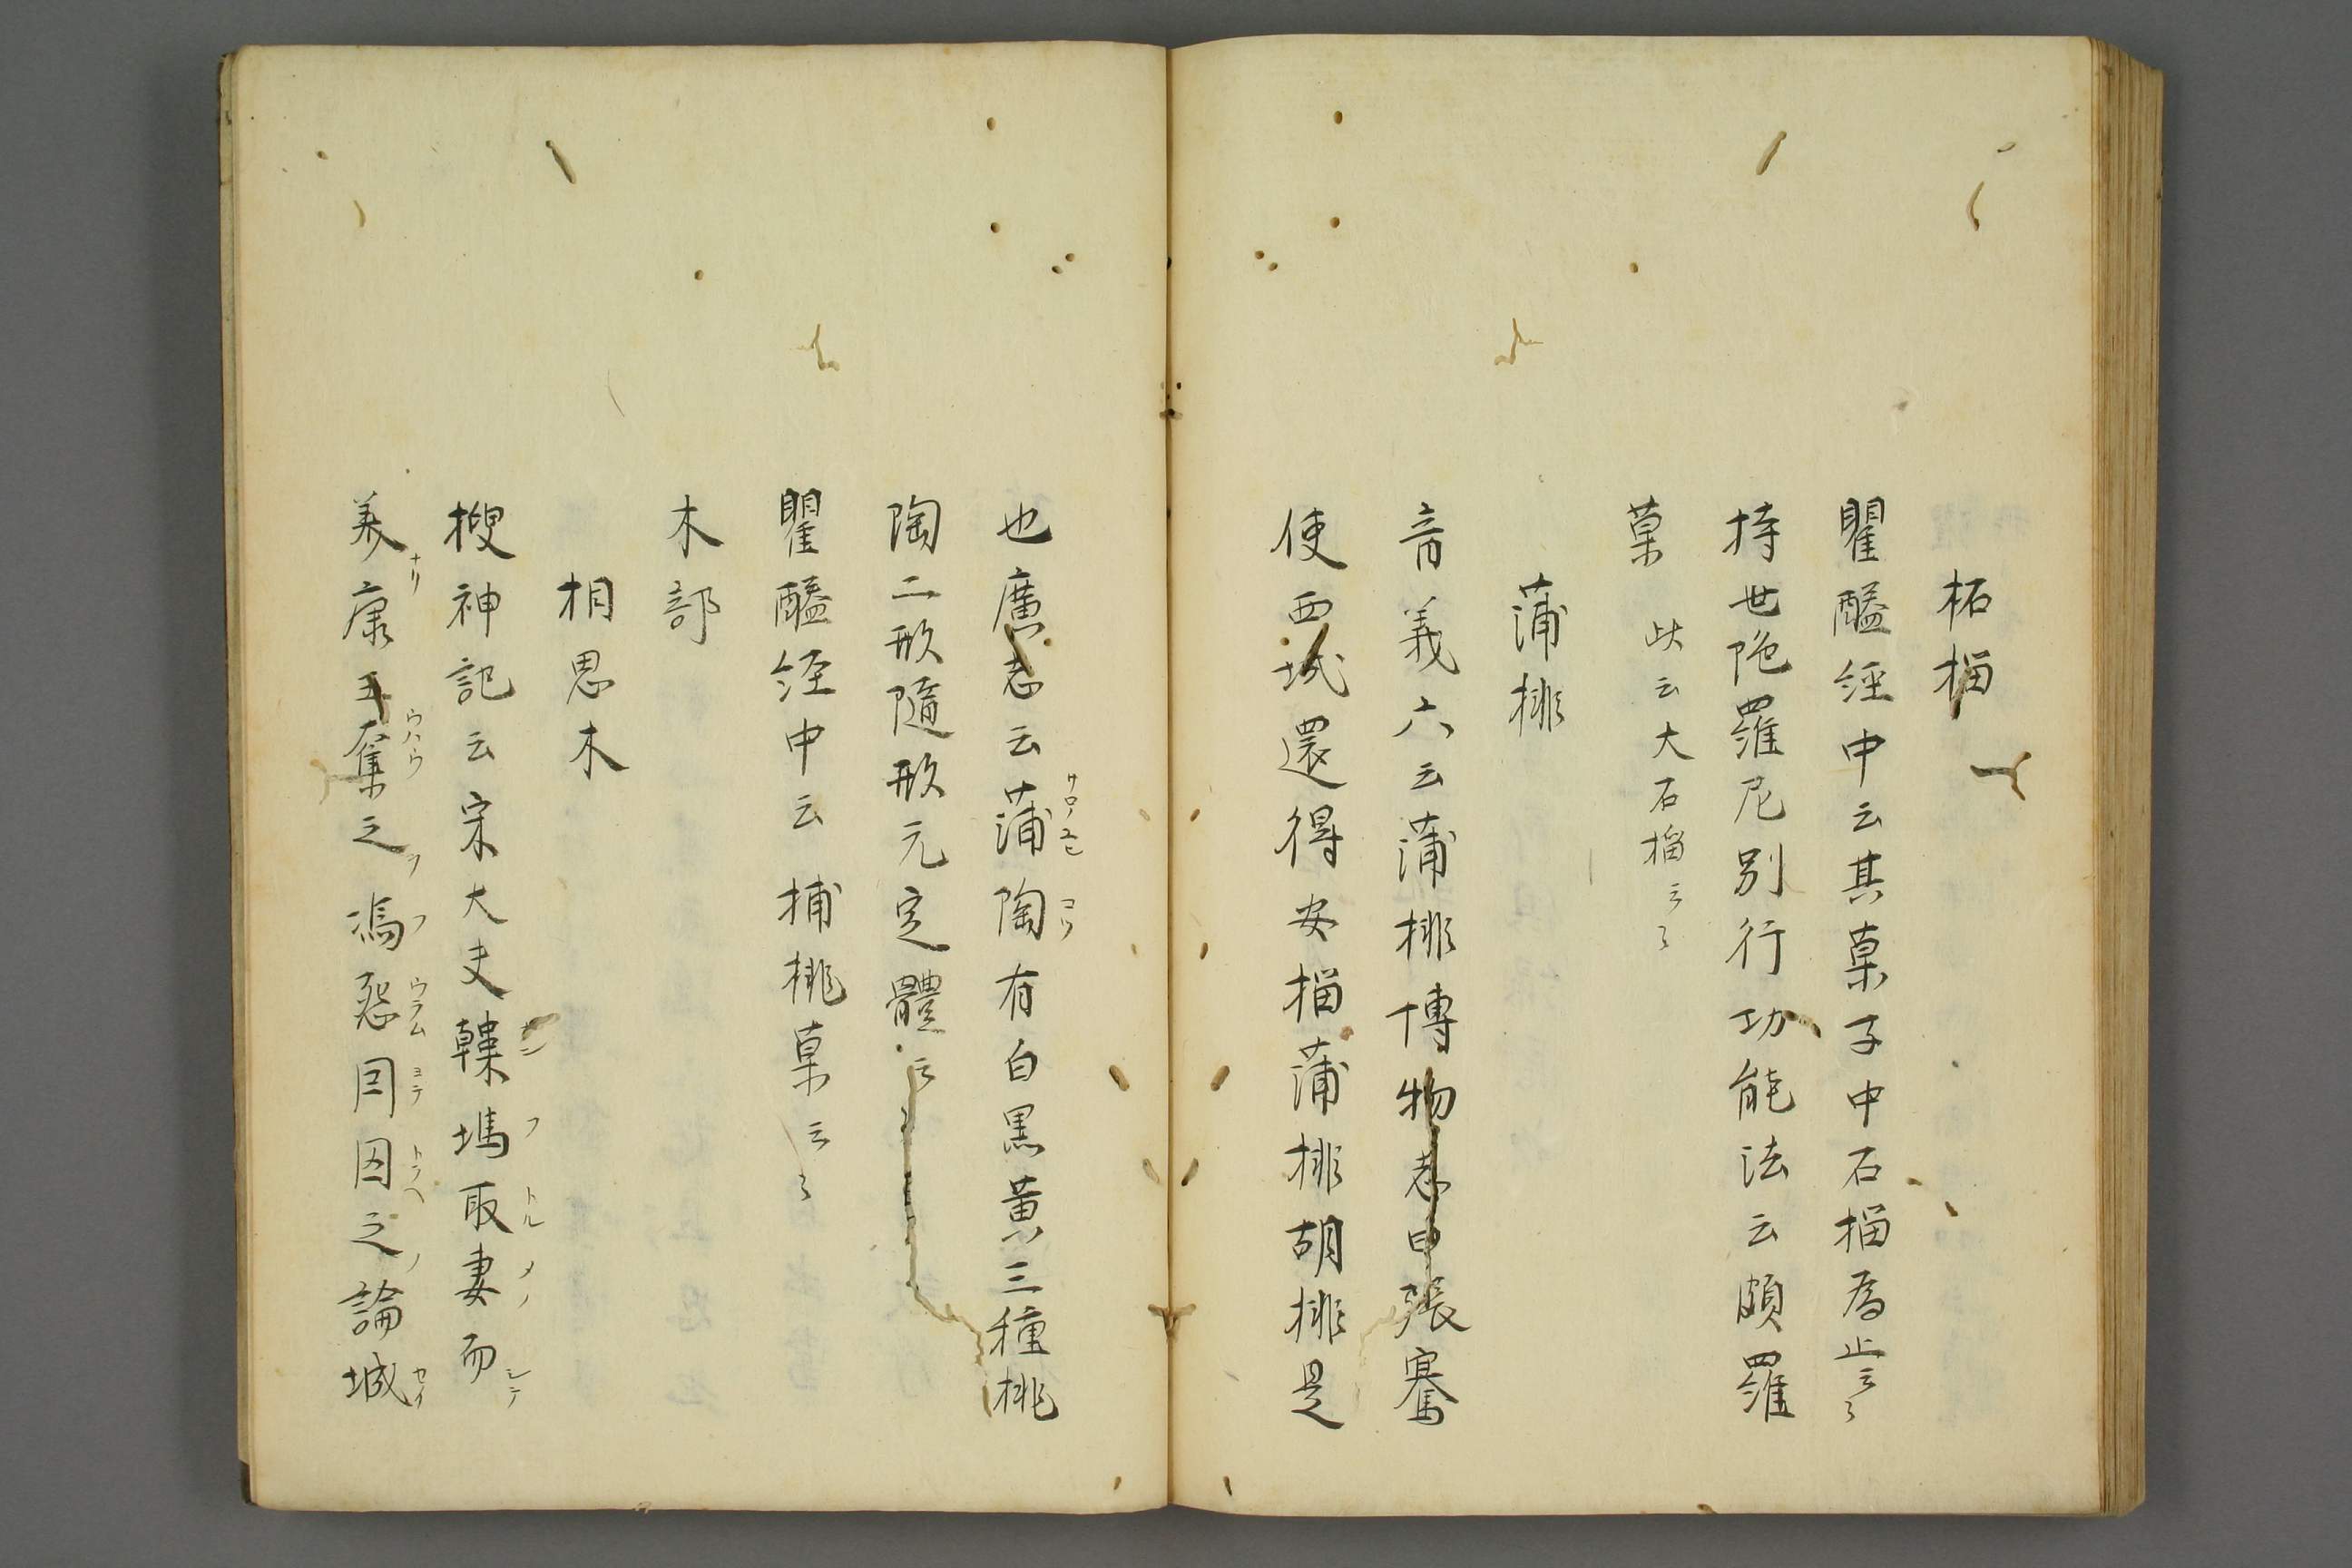 柘榴
瞿醯経中云其菓子中石榴為上云々
持世陁羅尼別行功能法云頗羅
菓 此云大石榴云々
蒲桃
音義六云蒲桃博物志曰張騫
使西域還得安榴蒲桃胡桃是
也廣志云蒲陶有白黒黄三種桃
陶二形隨形元定體云々
瞿醯経中云捕桃菓云々
木部
相思木
捜神記云宋大夫韓馮取妻而
美康王奪之馮怨因囚之論城